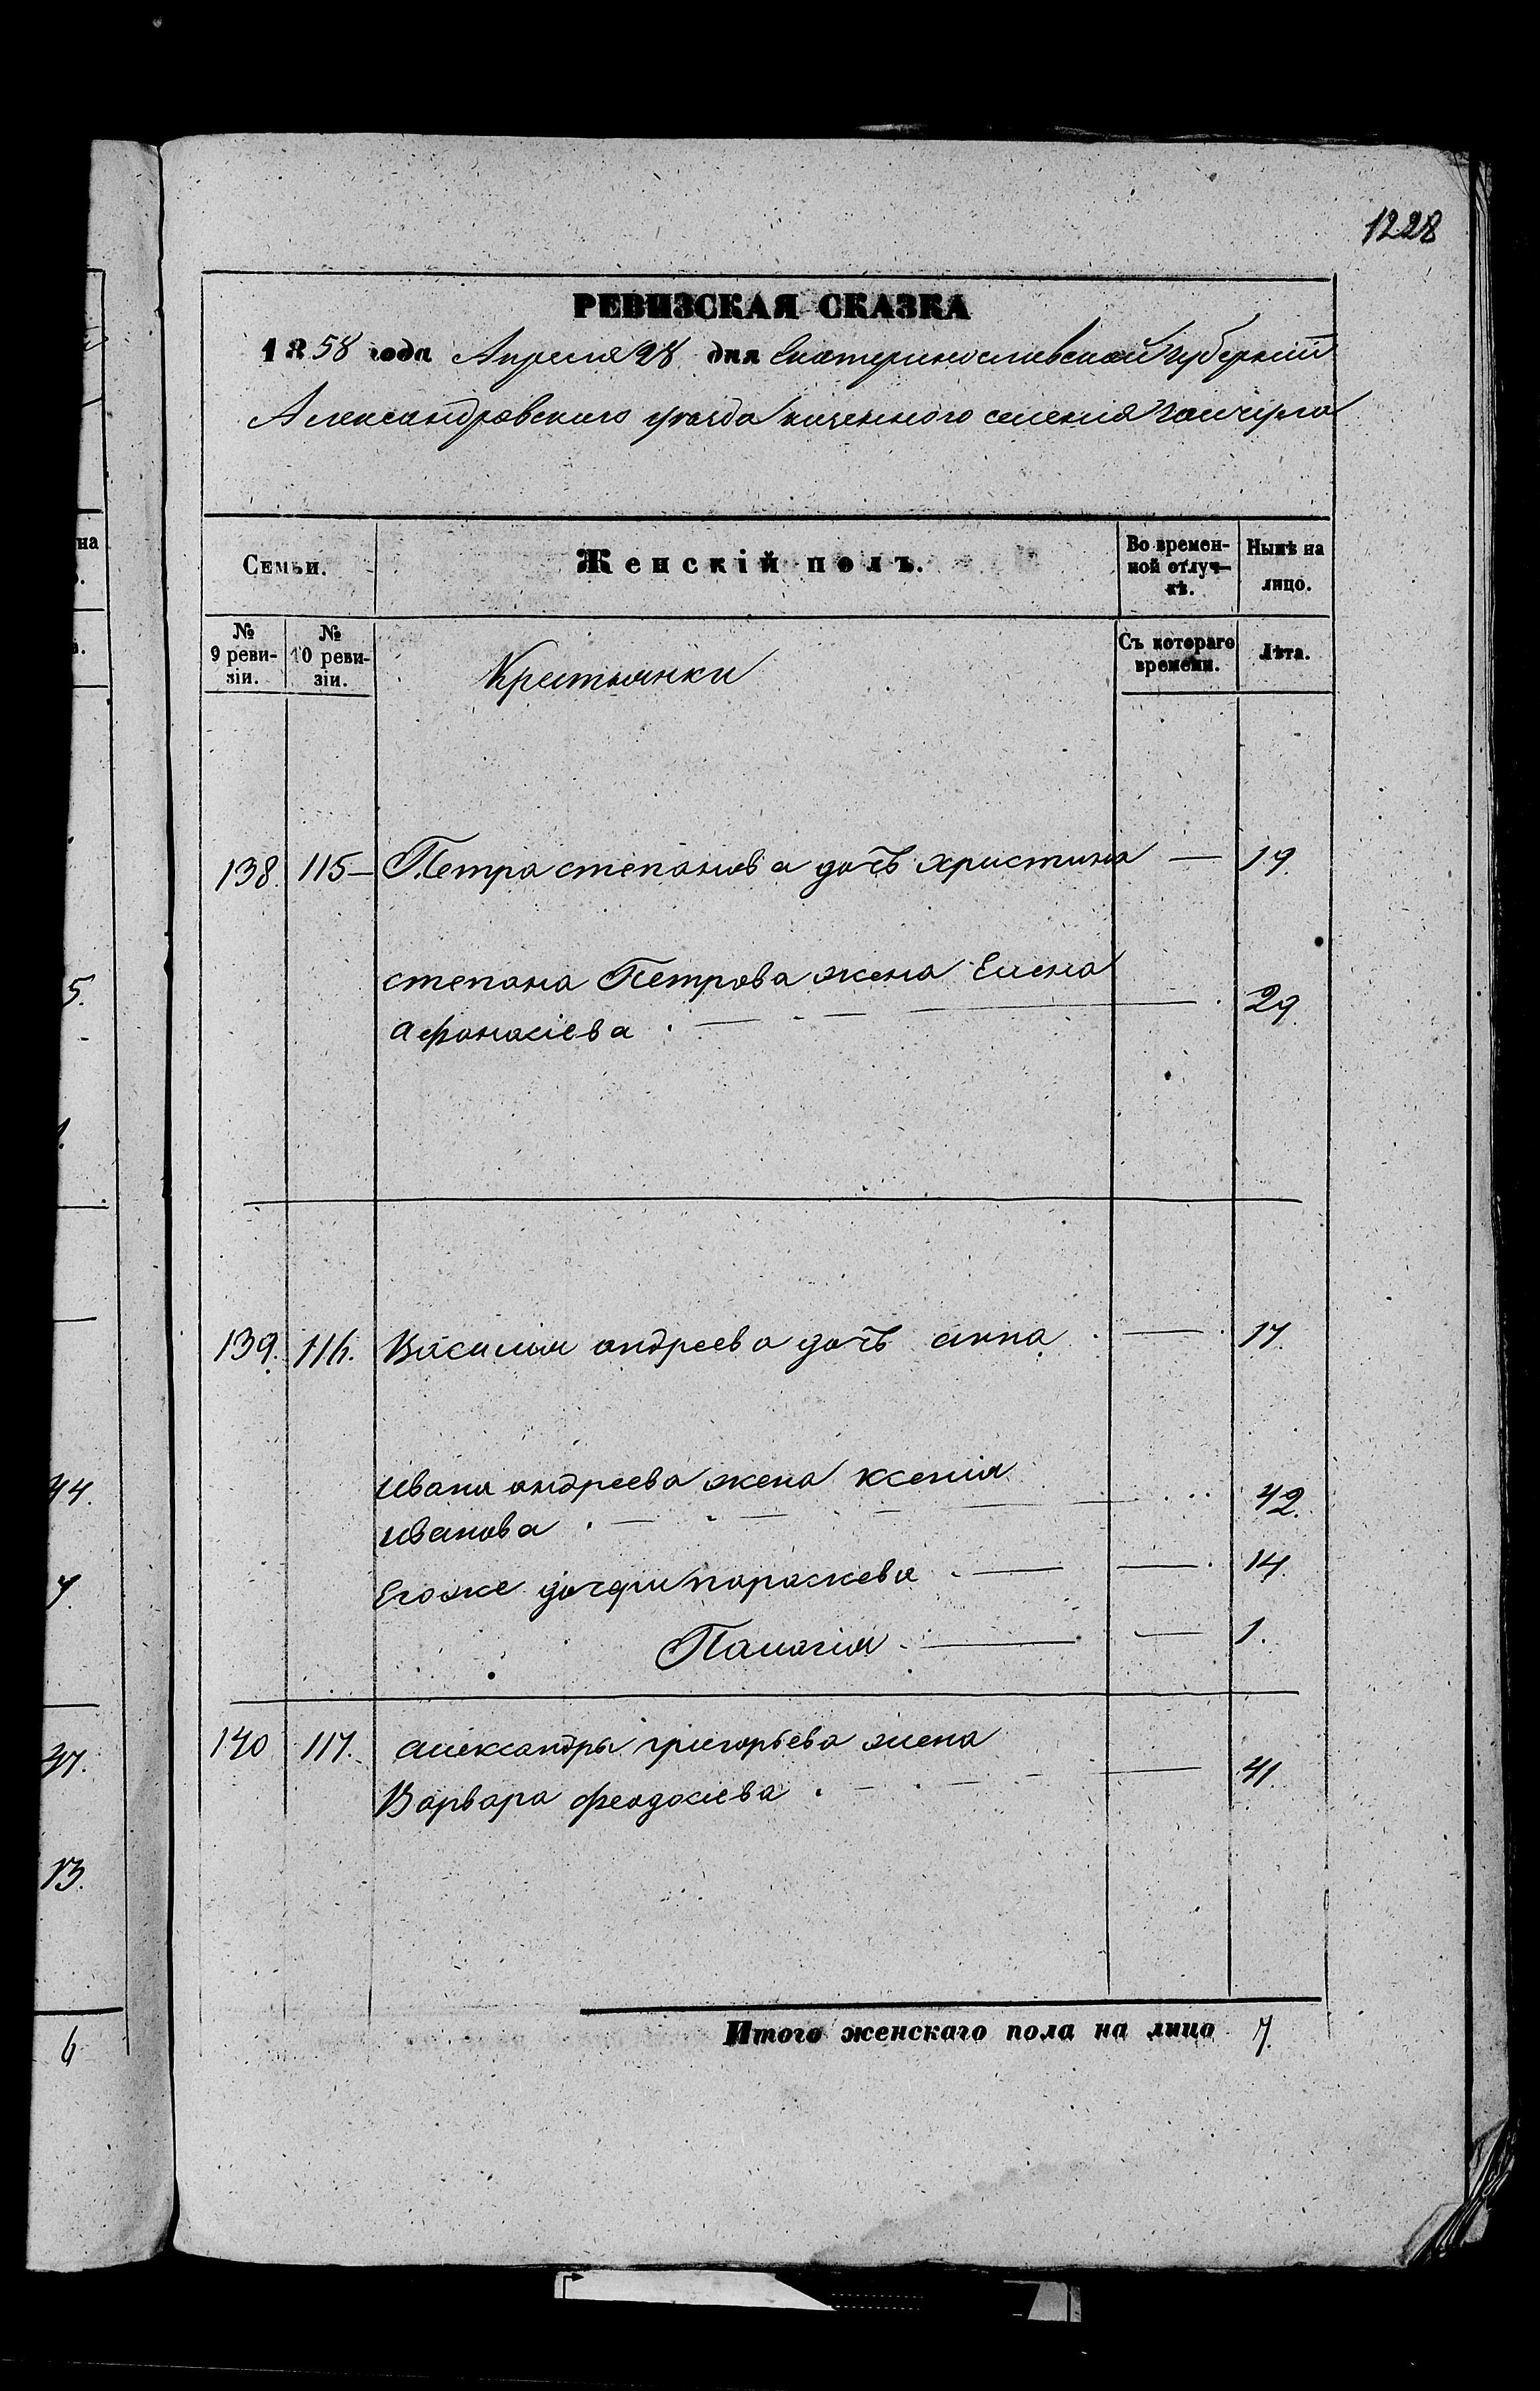 1228
РЕВИЗСКАЯ СКАЗКА
1858 года Апреля 28 дня Екатеринославской Губернии
Александровского уезда казенного селения Гайчула
Семьи.
Женскій полъ.
Во времен-
ной отлуч-
кѣ.
Нынѣ на
лицо.
№
9 реви-
зіи.
№
10 реви-
зіи.
Крестьянки
Съ котораго
времени.
Лѣта.
138. 115 — Петра степанова дочь христина — 19.
степана Петрова жена Елена
афанасіева — 29.
139. 116. Василия андреева дочь анна — 17.
ивана андреева жена ксения
иванова — 42.
Егоже дочери параскева — 14.
Палагия — 1.
140 117. александры григорьева жена
Варвара феодосиева — 41.
Итого женскаго пола на лицо 7.
на
5.
44.
7.
37.
13.
6